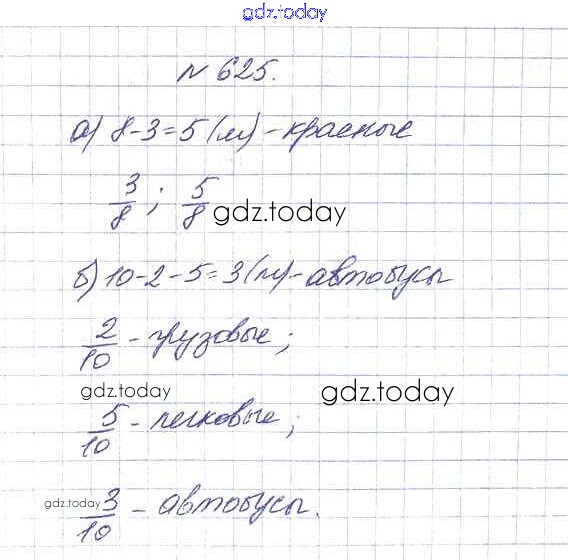 gdz.today
№ 625.
а) 8-3=5 (м) - красные
3/8 ; 5/8 gdz.today
б) 10-2-5=3 (м) - автобусы
2/10 - грузовые;
gdz.today gdz.today
5/10 - легковые;
gdz.today 3/10 - автобусы.